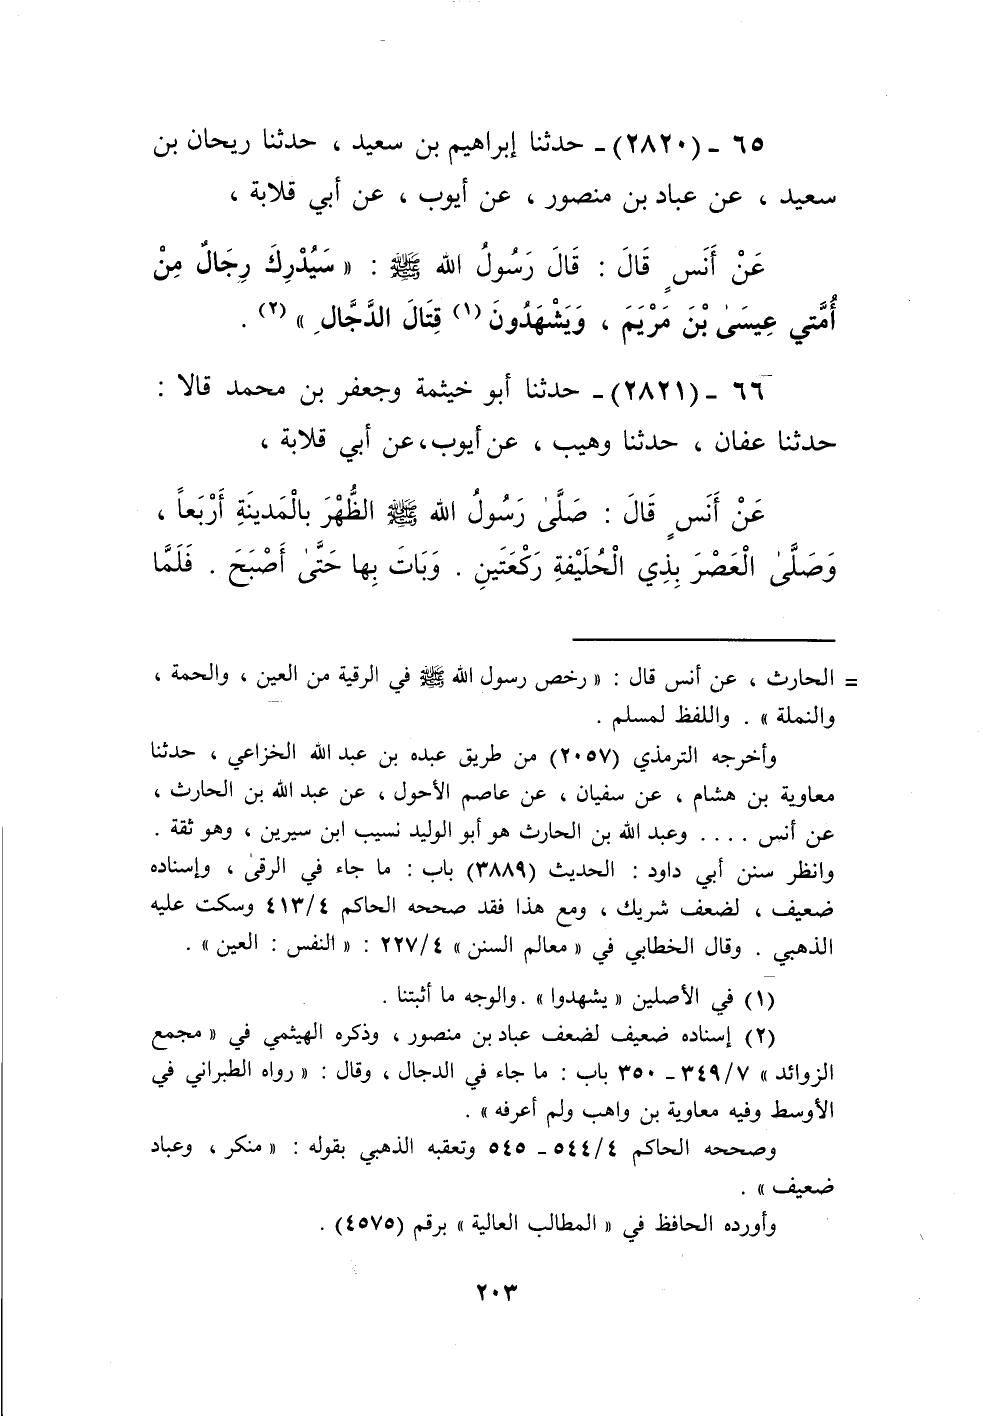 ٦٥ ـ (٢٨٢٠) ـ حدثنا إبراهيم بن سعيد ، حدثنا ريحان بن
سعيد ، عن عباد بن منصور ، عن أيوب ، عن أبي قلابة ،
عَنْ أَنَسٍ قَالَ : قَالَ رَسُولُ الله ﷺ : « سَيُدْرِكَ رِجَالٌ مِنْ
أُمَّتي عِيسَىٰ بْنَ مَرْيَمَ ، وَيَشْهَدُونَ (١) قِتَالَ الدَّجَّالِ » (٢) .
٦٦ ـ (٢٨٢١) ـ حدثنا أبو خيثمة وجعفر بن محمد قالا :
حدثنا عفان ، حدثنا وهيب ، عن أيوب، عن أبي قلابة ،
عَنْ أَنَسٍ قَالَ : صَلَّىٰ رَسُولُ الله ﷺ الظُّهْرَ بالْمَدينَةِ أَرْبَعاً ،
وَصَلَّىٰ الْعَصْرَ بِذِي الْحُلَيْفةِ رَكْعَتَينِ . وَبَاتَ بِها حَتَّىٰ أَصْبَحَ . فَلَمَّا
= الحارث ، عن أنس قال : « رخص رسول الله ﷺ في الرقية من العين ، والحمة ،
والنملة » . واللفظ لمسلم .
وأخرجه الترمذي (٢٠٥٧) من طريق عبده بن عبد الله الخزاعي ، حدثنا
معاوية بن هشام ، عن سفيان ، عن عاصم الأحول ، عن عبد الله بن الحارث ،
عن أنس . . . . وعبد الله بن الحارث هو أبو الوليد نسيب ابن سيرين ، وهو ثقة .
وانظر سنن أبي داود : الحديث (٣٨٨٩) باب : ما جاء في الرقىٰ ، وإسناده
ضعيف ، لضعف شريك ، ومع هذا فقد صححه الحاكم ٤١٣/٤ وسكت عليه
الذهبي . وقال الخطابي في « معالم السنن » ٢٢٧/٤ : « النفس : العين » .
(١) في الأصلين « يشهدوا » .والوجه ما أثبتنا .
(٢) إسناده ضعيف لضعف عباد بن منصور ، وذكره الهيثمي في « مجمع
الزوائد » ٣٤٩/٧ ـ ٣٥٠ باب : ما جاء في الدجال ، وقال : « رواه الطبراني في
الأوسط وفيه معاوية بن واهب ولم أعرفه » .
وصححه الحاكم ٥٤٤/٤ ـ ٥٤٥ وتعقبه الذهبي بقوله : « منكر ، وعباد
ضعيف » .
وأورده الحافظ في « المطالب العالية » برقم (٤٥٧٥) .
٢٠٣